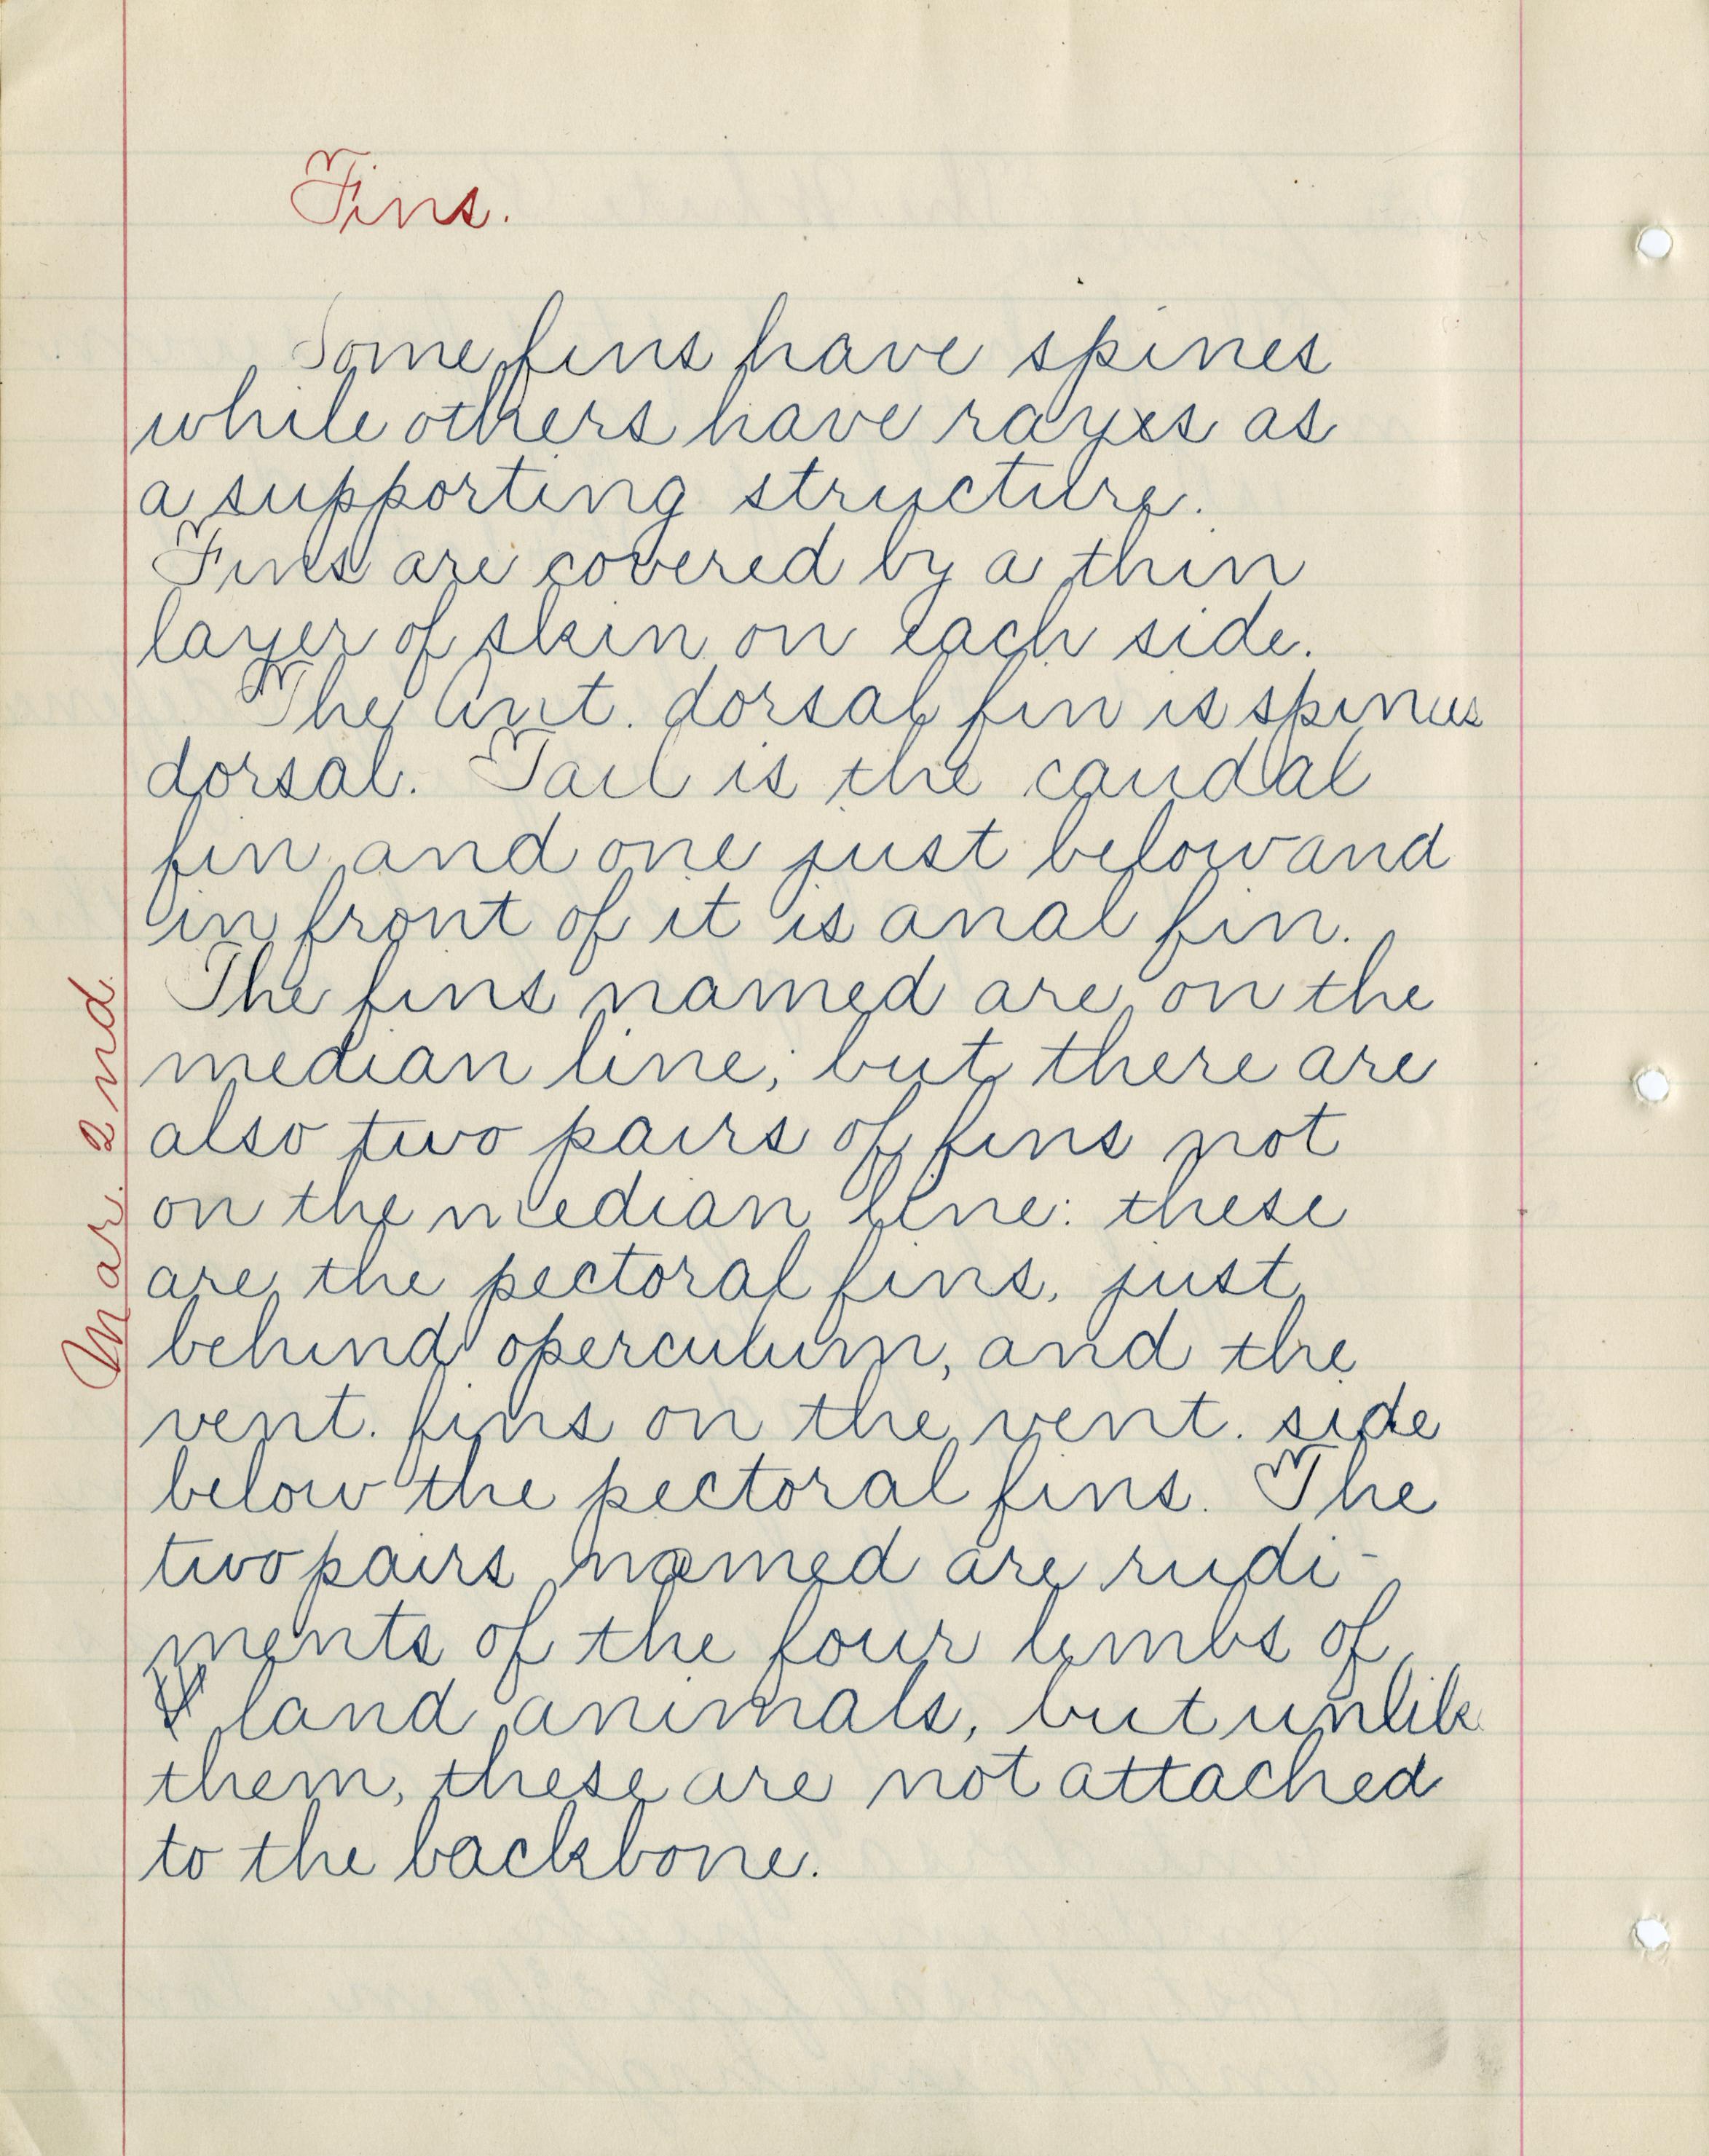 Fins.
Some fins have spines
while others have rays as
a supporting structure.
Fins are covered by a thin
layer of skin on each side.
The Ant. dorsal fin is spinus
dorsal. Tail is the caudal
fin and one just below and
in front of it is anal fin.
The fins named are on the
median line; but there are
also two pairs of fins not
on the median line: these
are the pectoral fins, just
behind operculum, and the
vent. fins on the vent. side
below the pectoral fins. The
two pairs named are rudi-
ments of the four limbs of
land animals, but unlike
them, these are not attached
to the backbone.
Mar. 2nd